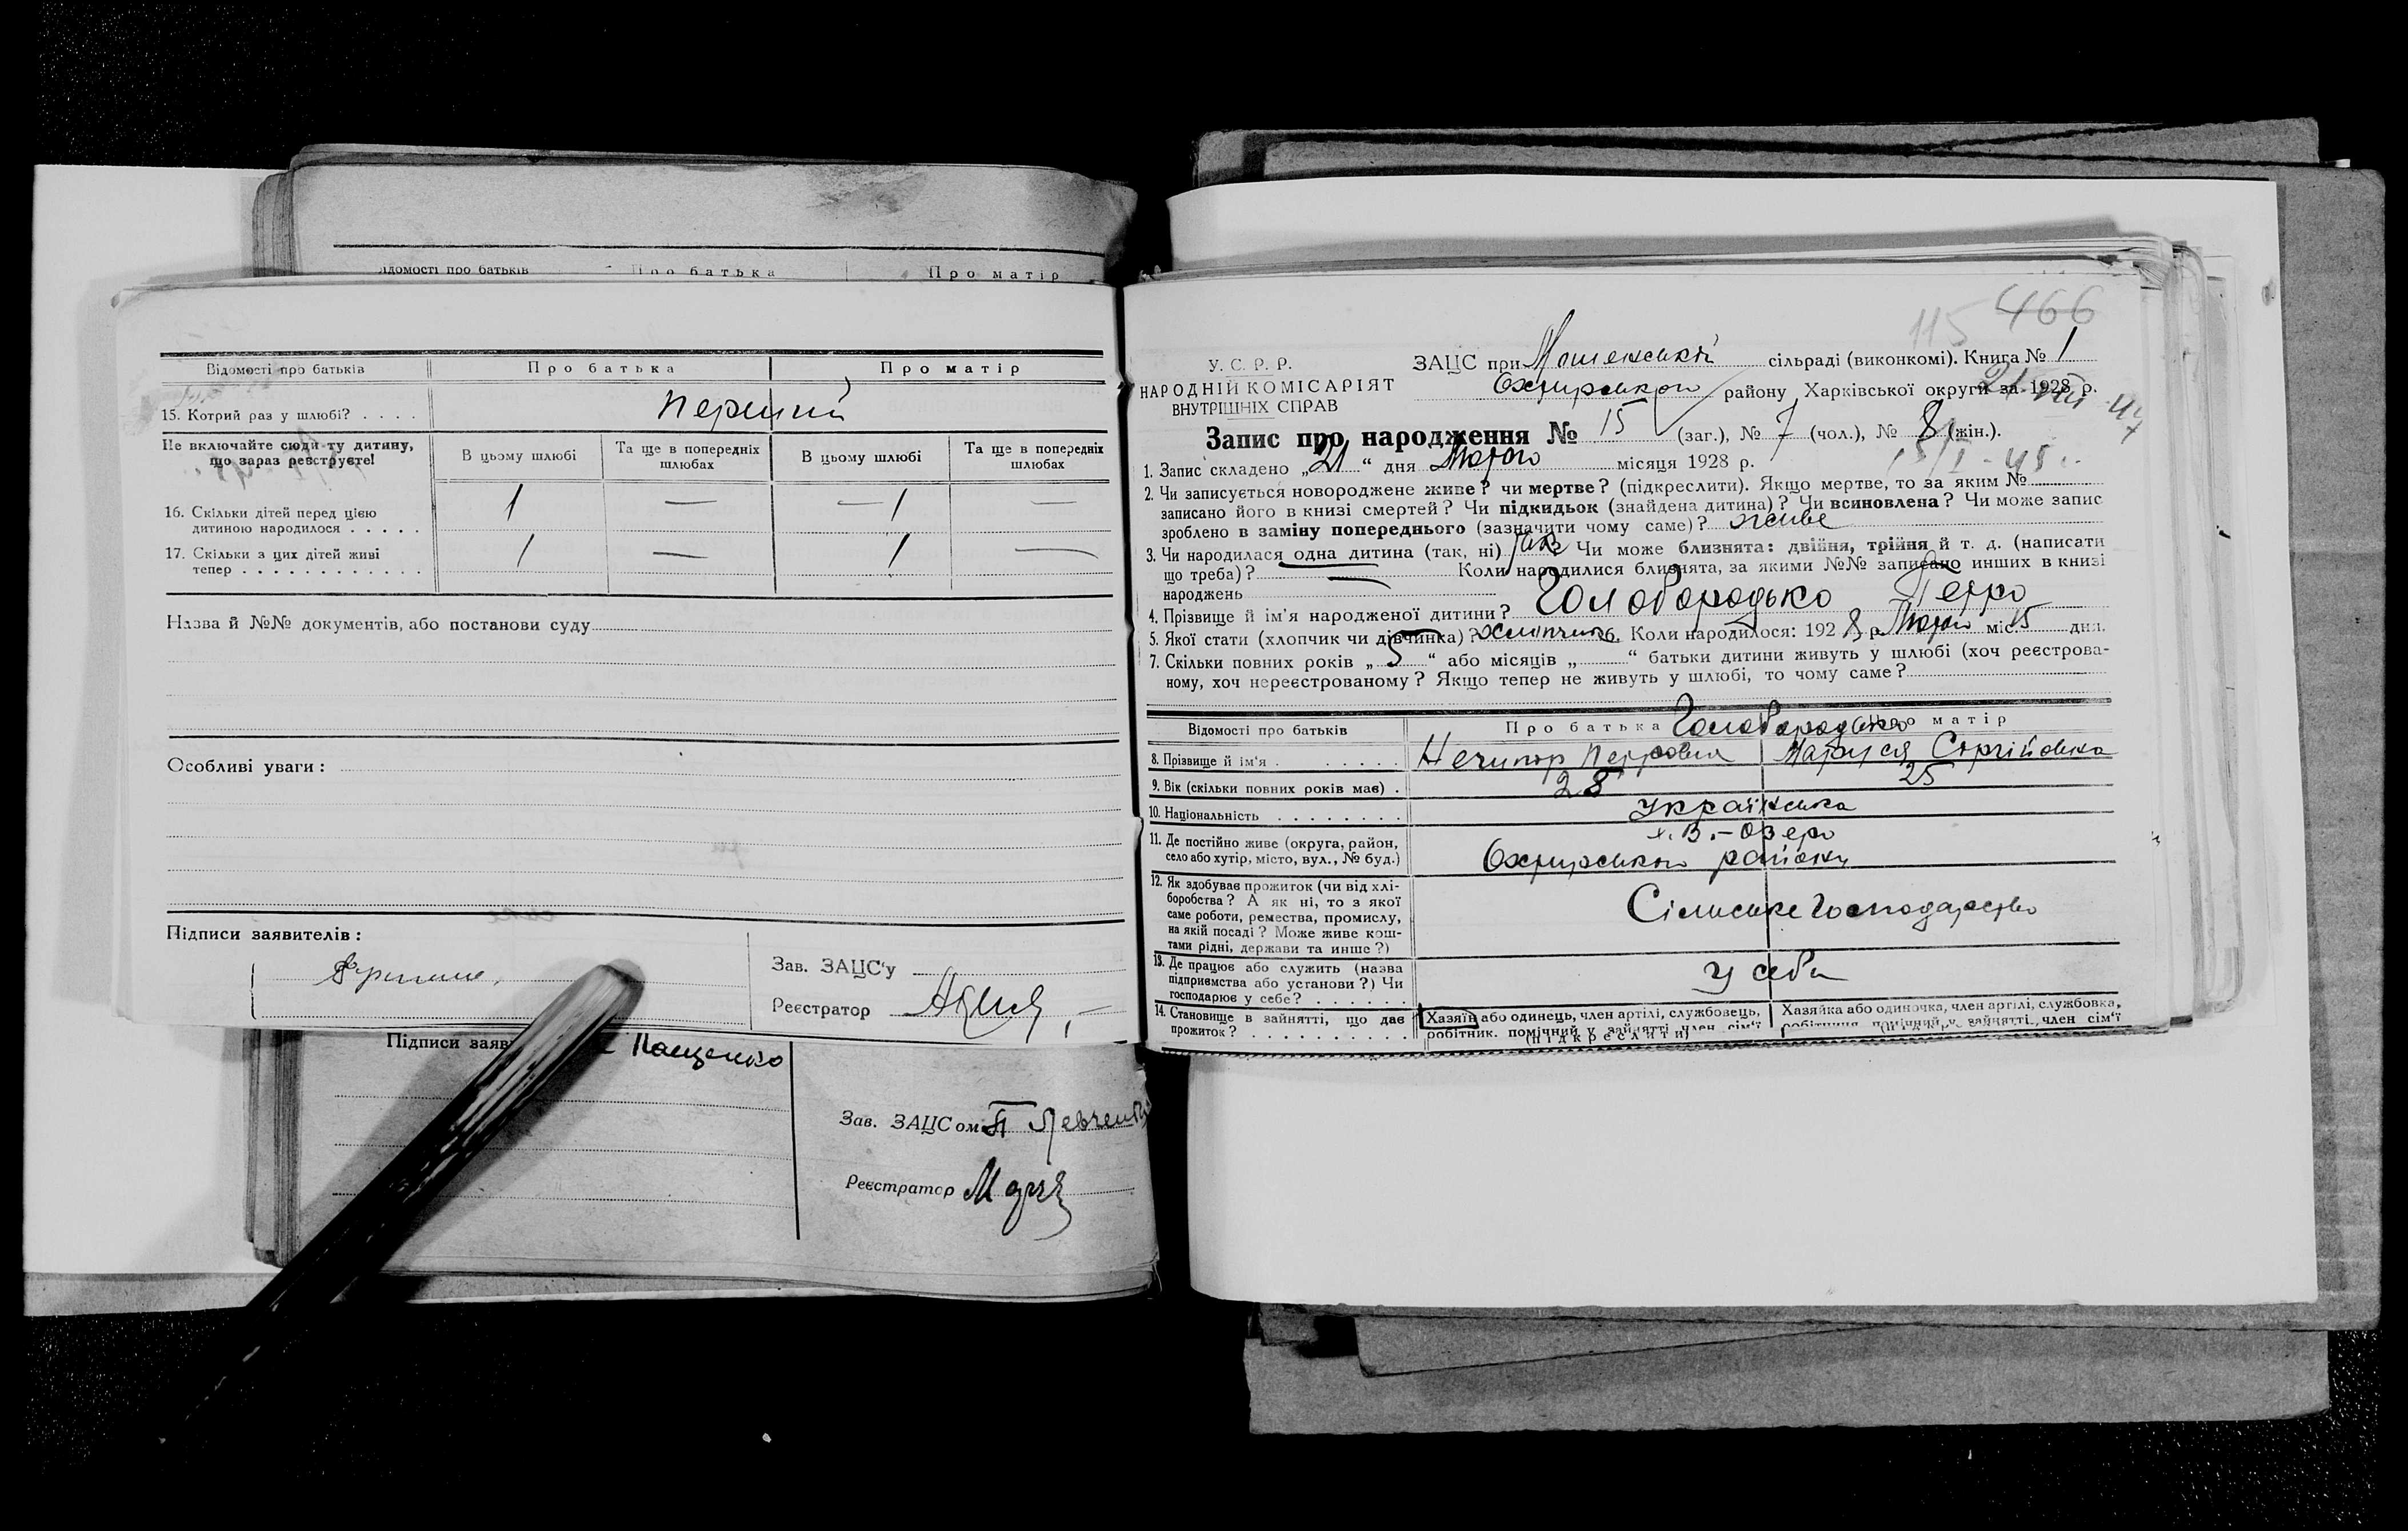 Відомості про батьків Про батька Про матір
Відомості про батьків Про батька Про матір
15. Котрий раз у шлюбі? . . . . перший
Не включайте сюди ту дитину, що зараз реєструєте!
В цьому шлюбі Та ще в попередніх шлюбах В цьому шлюбі Та ще в попередніх шлюбах
16. Скільки дітей перед цією
дитиною народилося . . . . . 1 — —1 —
17. Скільки з цих дітей живі
тепер . . . . . . . . . . . . 1 — 1 —
Назва й №№ документів, або постанови суду
Особливі уваги:
Підписи заявителів:
Зав. ЗАЦС'у
Реєстратор
Підписи заяв Пащенко
Зав. ЗАЦСом П Левченко
Реєстратор
115 466
У. С. Р. Р.
НАРОДНІЙ КОМІСАРІЯТ
ВНУТРІШНІХ СПРАВ
ЗАЦС при сільраді (виконкомі). Книга № 1
Охтирського району Харківської округи за 1928 р.
Запис про народження № 15 (заг.), № 7 (чол.), № 8 (жін.).
15/I - 45
1. Запис складено „21“ дня Марта місяця 1928 р.
2. Чи записується новороджене живе? чи мертве? (підкреслити). Якщо мертве, то за яким №
записано його в книзі смертей? Чи підкидьок (знайдена дитина)? Чи всиновлена? Чи може запис
зроблено в заміну попереднього (зазначити чому саме)? живе
3. Чи народилася одна дитина (так, ні) так Чи може близнята: двійня, трійня й т. д. (написати
що треба)? — Коли народилися близнята, за якими №№ записано инших в книзі
народжень
4. Прізвище й ім'я народженої дитини? Голобородько Петро
5. Якої статі (хлопчик чи дівчинка)? хлопчик. Коли народилося: 1928 р. Марта міс. 15 дня.
7. Скільки повних років „5“ або місяців „ “ батьки дитини живуть у шлюбі (хоч реєстрова-
ному, хоч нереєстрованому? Якщо тепер не живуть у шлюбі, то чому саме?
Відомості про батьків Про батька Голобородько Про матір
8. Прізвище й ім'я . . . . . . Нечипор Петрович Маруся Сергійовна
9. Вік (скільки повних років має) . 28 25
10. Національність . . . . . . . . Українська
11. Де постійно живе (округа, район,
село або хутір, місто, вул., № буд.)
х. В.-Озеро
Охтирського району
12. Як здобуває прожиток (чи від хлі-
боробства? А як ні, то з якої
саме роботи, ремества, промислу,
на якій посаді? Може живе кош-
тами рідні, держави та инше?)
Сільське Господарство
13. Де працює або служить (назва
підприємства або установи?) Чи
господарює у себе? . . . . . .
У себе
14. Становище в зайнятті, що дає
прожиток? . . . . . . . . . .
Хазяїн або одинець, член артілі, службовець,
робітник, помічний у зайнятті член сім'ї
Хазяйка або одиночка, член артілі, службовка,
робітниця, помічний у зайнятті, член сім'ї
(підкреслити)